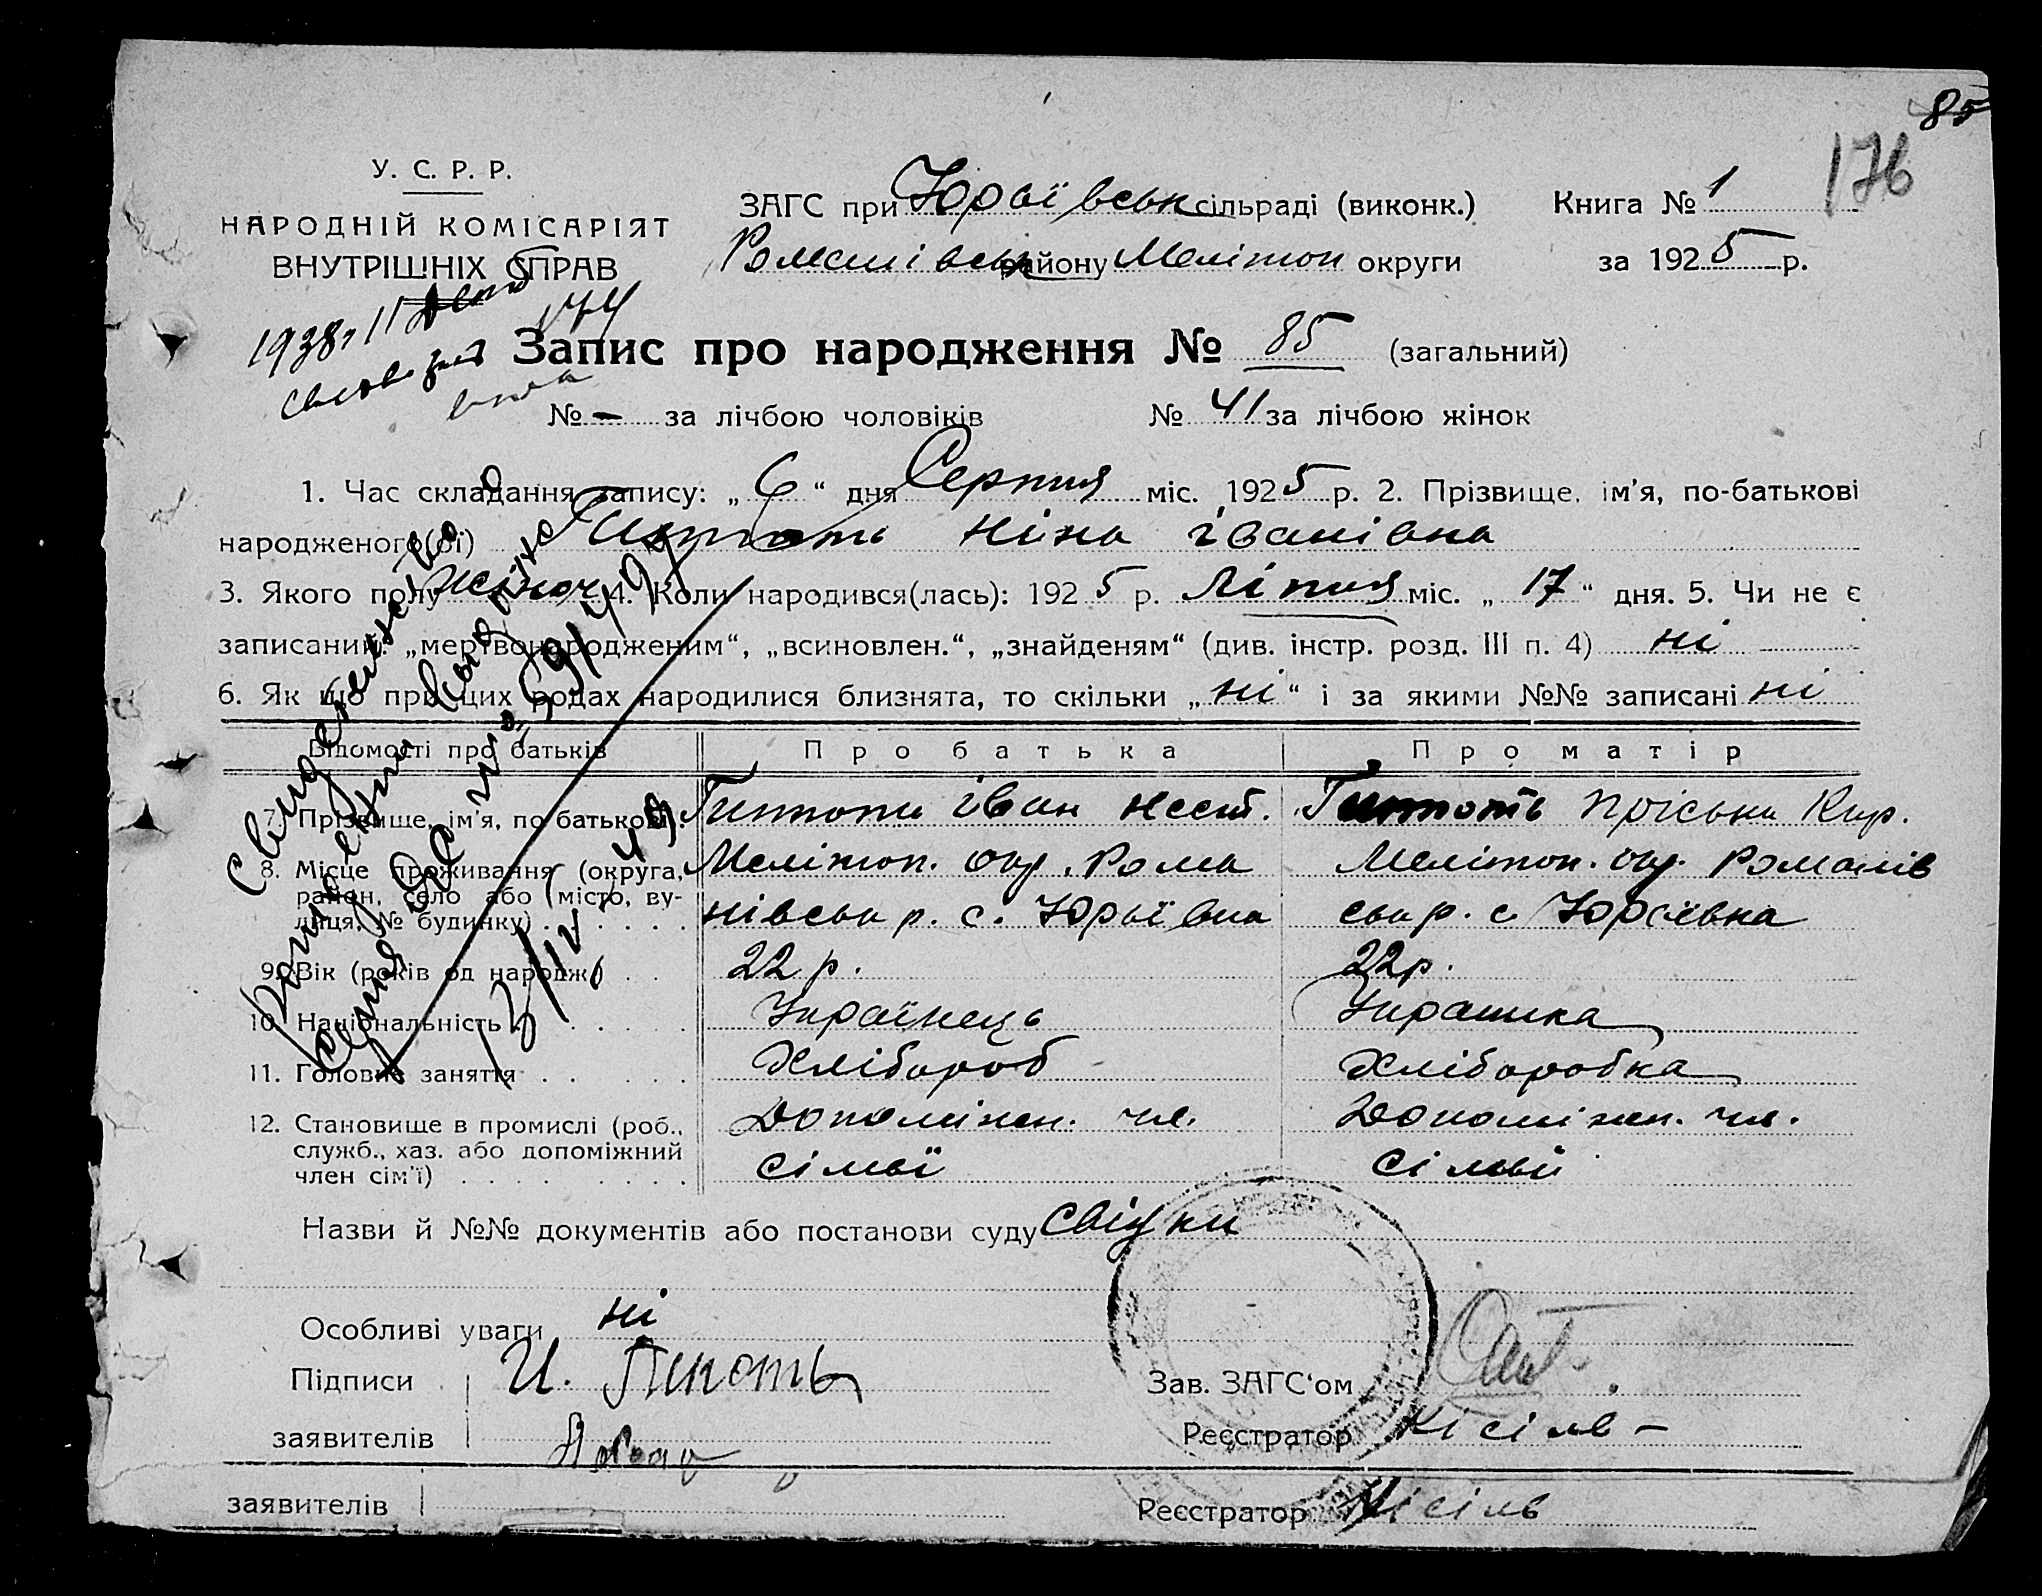 85
176
У. С. Р. Р.
НАРОДНІЙ КОМІСАРІЯТ
ВНУТРІШНІХ СПРАВ
ЗАГС при Юрьївськ сільраді (виконк.)
Романівськ району Мелітоп округи
Книга № 1
за 1925 р.
1938 11
Запис про народження № 85 (загальний)
№ – за лічбою чоловіків № 41 за лічбою жінок
1. Час складання запису: „ 6 “ дня Серпня міс. 1925 р. 2. Прізвище, ім'я, по-батькові
народженого(ої) Ніна Іванівна
3. Якого полу жіноч 4. Коли народився(лась): 1925 р. Ліпня міс. „ 17 “ дня. 5. Чи не є
записаний: „мертвонародженим“, „всиновлен.“, „знайденям“ (див. інстр. розд. III п. 4) ні
6. Як що при цих родах народилися близнята, то скільки „ ні “ і за якими №№ записані ні
Відомості про батьків Про батька Про матір
7. Прізвище, ім'я, по батькові Іван Нест. Пріська Кир.
8. Місце проживання (округа, район, село або (місто, вулиця, № будинку)
Мелітоп. окр. Рома
нівськ р. с. Юрьївка
Мелітоп. окр. Романів
ськ р. с. Юрьєвка
9. Вік (років од народж.) 22 р. 22 р.
10. Національність Українець Українка
11. Головне заняття Хлібороб Хліборобка
12. Становище в промислі (роб., служб., хаз. або допоміжний член сім'ї)
Допоміжн. чл.
сімьї
Допоміжн. чл.
сімьї
Свидетельство
13/IV-49
Назви й №№ документів або постанови суду свідки
Особливі уваги ні
Підписи И.
заявителів
Зав. ЗАГС'ом
Реєстратор Кісіль
заявителів
Реєстратор Кісіль